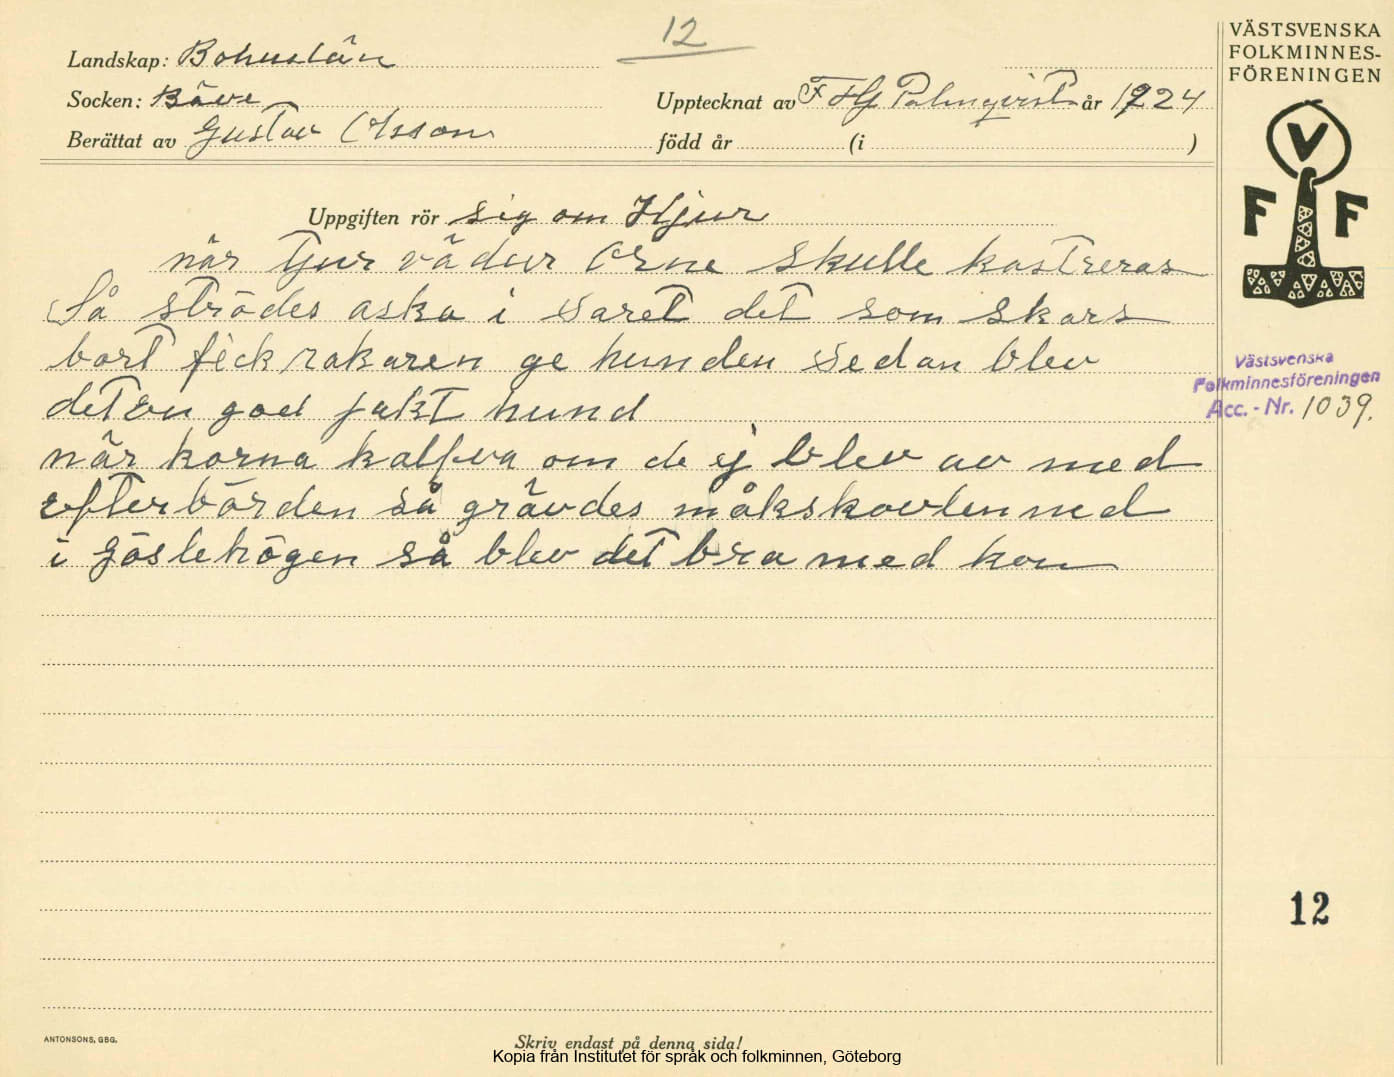 12
Landskap: Bohuslän
Socken: Bäve
Upptecknat av F Hj Palmqvist år 1924
Berättat av Gustav Olsson
född år (i )
Uppgiften rör sig om Hjur
när Tjur vädur Orne skulle kastreras
Så ströddes aska i saret det som skars
bort fick rakaren ge hunden sedan blev
det en god jakt hund
när korna kalfva om de ej blev av med
efterbörden så grävdes måkskovlen ned
i Göslehögen så blev det bra med kon
VÄSTSVENSKA
FOLKMINNES-
FÖRENINGEN
V
F F
Västsvenska
Folkminnesföreningen
Acc. - Nr. 1039.
12
ANTONSONS, GBG.
Skriv endast på denna sida!
Kopia från Institutet för språk och folkminnen, Göteborg